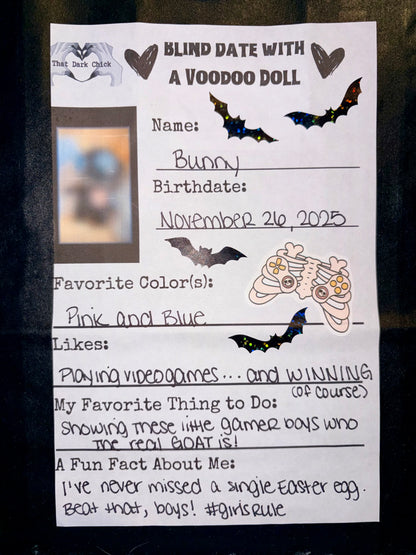 BLIND DATE WITH
A VOODOO DOLL
That Dark Chick
Name:
Bunny
Birthdate:
November 26, 2025
Favorite Color(s):
Pink and Blue
Likes:
Playing videogames... and WINNING
(of course)
My Favorite Thing to Do:
Showing these little gamer boys who
the real GOAT is!
A Fun Fact About Me:
I've never missed a single Easter egg.
Beat that, boys! #girlsRule